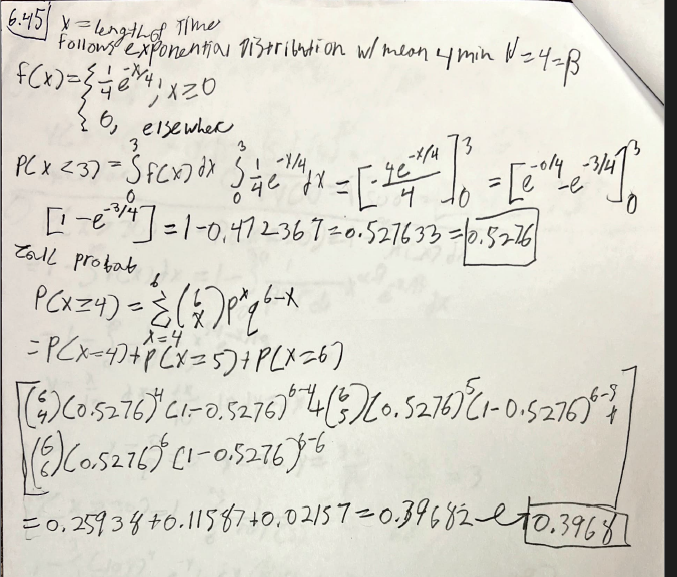 6.45 x = length of Time
Follows exponential Distribution w/ mean 4 min μ = 4 = β
f(x) = { 1/4 e^-x/4 ; x ≥ 0
{ 0, elsewher
P(x < 3) = ∫₀³ f(x) dx ∫₀³ 1/4 e^-x/4 dx = [-4e^-x/4 / 4]₀³ = [e^-0/4 - e^-3/4]₀³
[1 - e^-3/4] = 1 - 0.472367 = 0.527633 = 0.5276
Calc probab
P(x ≥ 4) = Σ_{x=4}^{6} (6 x) p^x q^6-x
= P(x=4) + P(x=5) + P(x=6)
[(6 4)(0.5276)^4 (1-0.5276)^6-4 + (6 5)(0.5276)^5 (1-0.5276)^6-5 +
(6 6)(0.5276)^6 (1-0.5276)^6-6]
= 0.25938 + 0.11587 + 0.02157 = 0.39682 0.3968